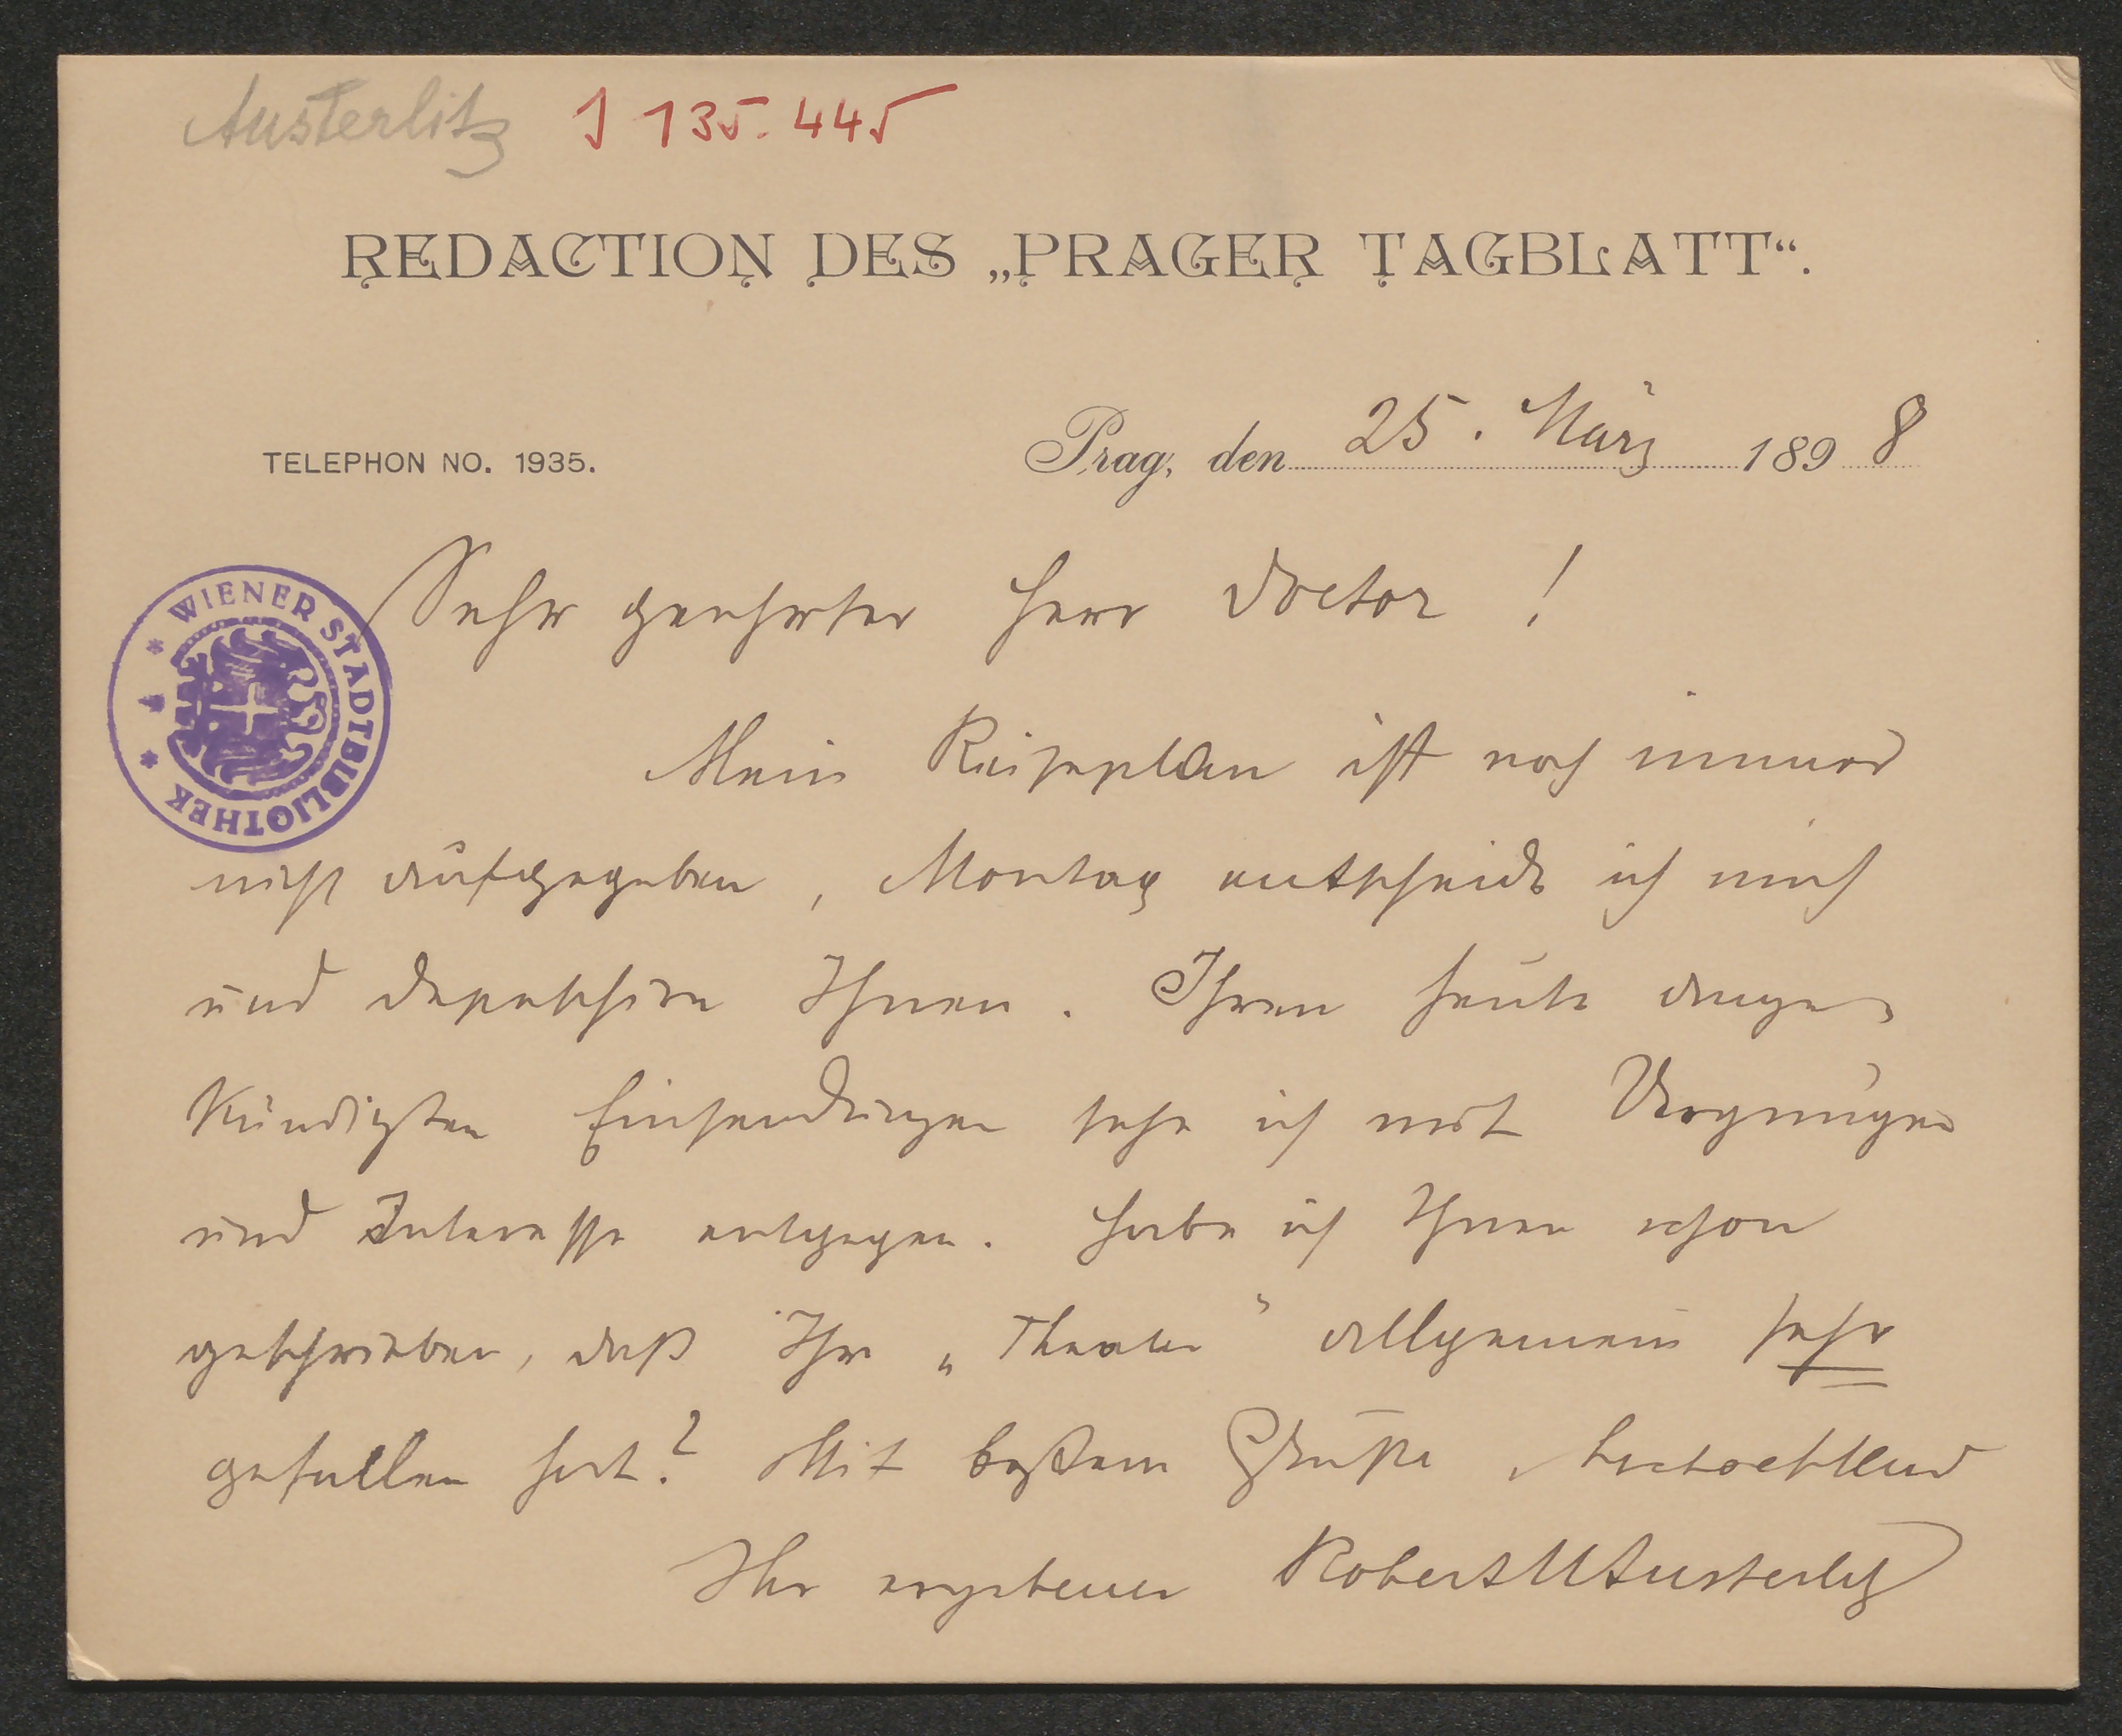 Austerlitz J 135.445
REDACTION DES „PRAGER TAGBLATT“.
TELEPHON NO. 1935. Prag, den 25. März 1898
WIENER STADTBIBLIOTHEK
Sehr geehrter Herr Doctor!
Mein Reiseplan ist noch immer
nicht aufgegeben, Montag entscheide ich mich
und depeschire Ihnen. Ihren heute ange-
kündigten Einsendungen sehe ich mit Vergnügen
und Interesse entgegen. Habe ich Ihnen schon
geschrieben, daß Ihr „Theater“ allgemein sehr
gefallen hat? Mit bestem Gruße, hochachtend
Ihr ergebener Robert M Austerlitz